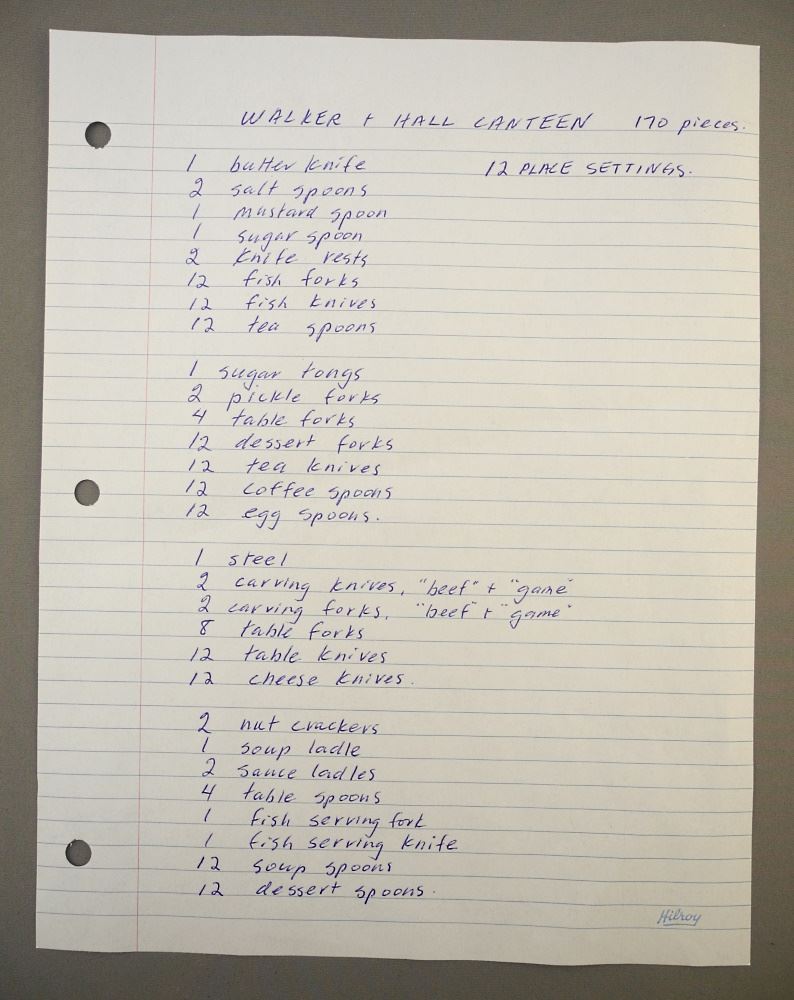 WALKER + HALL CANTEEN 170 pieces.
1 butter knife 12 PLACE SETTINGS.
2 salt spoons
1 mustard spoon
1 sugar spoon
2 knife rests
12 fish forks
12 fish knives
12 tea spoons
1 sugar tongs
2 pickle forks
4 table forks
12 dessert forks
12 tea knives
12 coffee spoons
12 egg spoons.
1 steel
2 carving knives, "beef" + "game"
2 carving forks, "beef" + "game"
8 table forks
12 table knives
12 cheese knives.
2 nut crackers
1 soup ladle
2 sauce ladles
4 table spoons
1 fish serving fork
1 fish serving knife
12 soup spoons
12 dessert spoons.
Hilroy